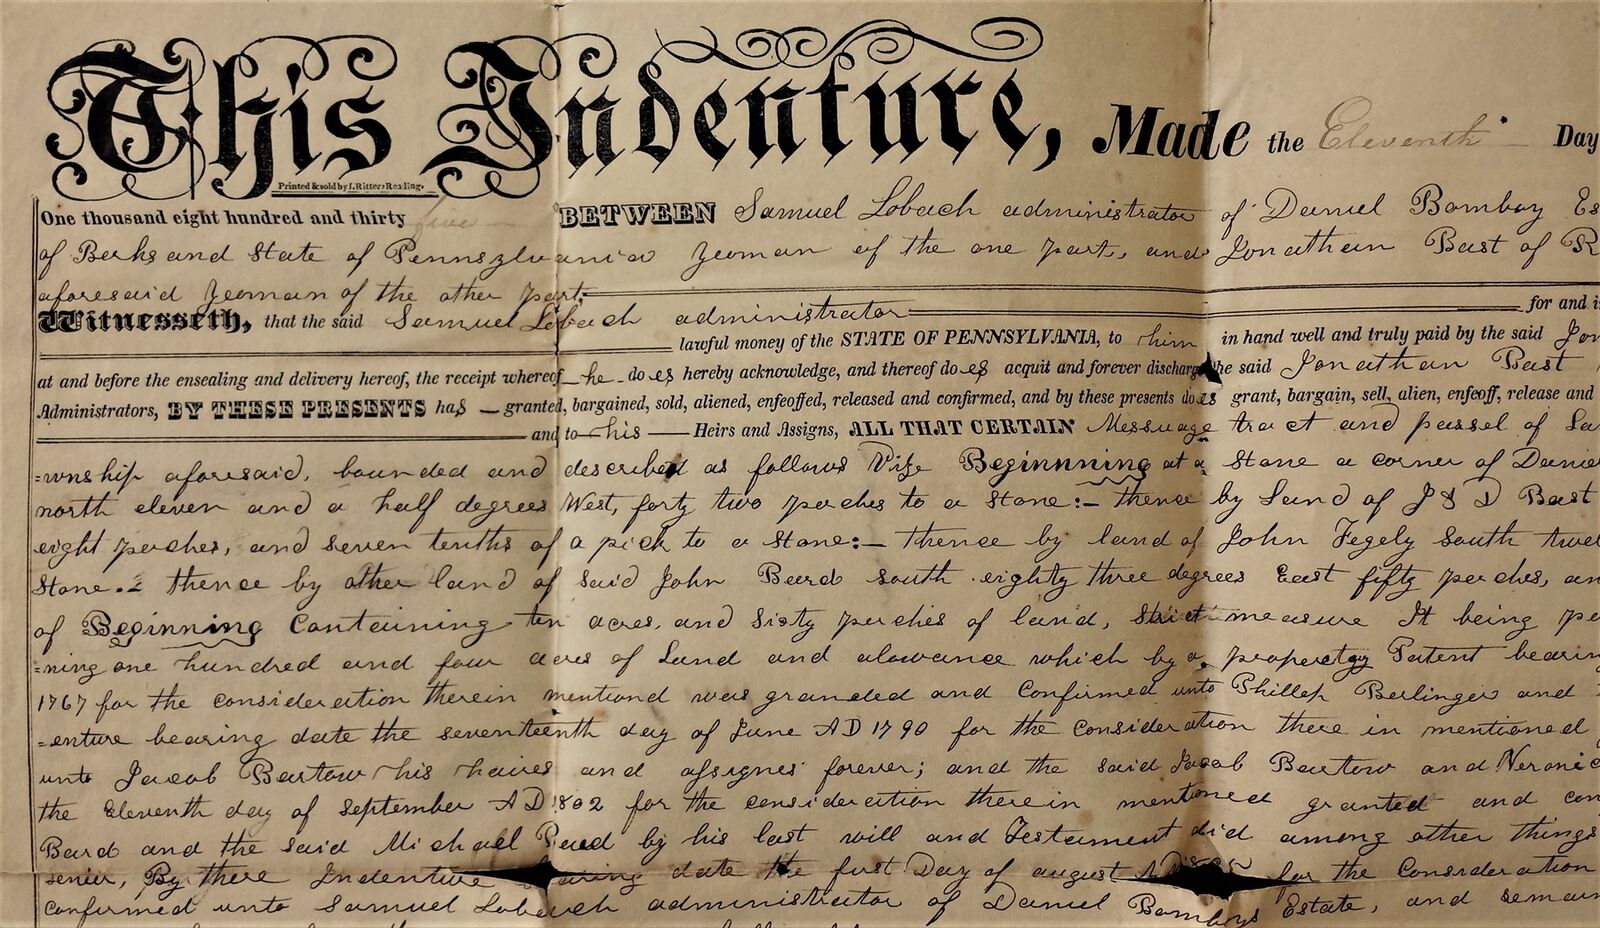 This Indenture, Made the Eleventh Day
Printed & sold by J. Ritter, Reading.
One thousand eight hundred and thirty five BETWEEN Samuel Lobach administrator of Daniel Bomboy Es
of Berks and State of Pennszlvania yeoman of the one part, and Jonathan Bast of R
aforesaid yeoman of the other part;
Witnesseth, that the said Samuel Lobach administrator for and i
lawful money of the STATE OF PENNSYLVANIA, to him in hand well and truly paid by the said Jon
at and before the ensealing and delivery hereof, the receipt whereof he does hereby acknowledge, and thereof does acquit and forever discharge the said Jonathan Bast
Administrators, BY THESE PRESENTS has granted, bargained, sold, aliened, enfeoffed, released and confirmed, and by these presents does grant, bargain, sell, alien, enfeoff, release and
and to his Heirs and Assigns, ALL THAT CERTAIN Messuage tract and passel of La
=wnship aforesaid, bounded and described as follows Vize Beginnning at a Stone a corner of Danie
north eleven and a half degrees West, forty two perches to a Stone:- thence by Land of J & D Bast
eight perches, and seven tenths of a pich to a Stone:- thence by land of John Fegely South twel
Stone.: thence by other land of said John Beard south eighty three degrees East fifty perches, an
of Beginning Containing ten acres, and Sixty perches of land, Strict measure It being pe
=ning one hundred and four acres of Land and alowance which by a Patent bearin
1767 for the consideration therein mentioned was granded and Confirmed unto Phillip Berlinger and
=enture bearing date the seventeenth day of June AD 1790 for the Consideration there in mentioned
unto Jacob Bartow his haires and assignes forever; and the said Jacob Bartow and Veronic
the Eleventh day of September AD 1802 for the consideration therein mentioned granted and con
Bard and the said Michael Beard by his last will and Testament did among other things
senier, By there Indenture bearing date the first Day of august for the Consideration
Confirmed unto Samuel Lobach administrator of Daniel Bomboys Estate, and